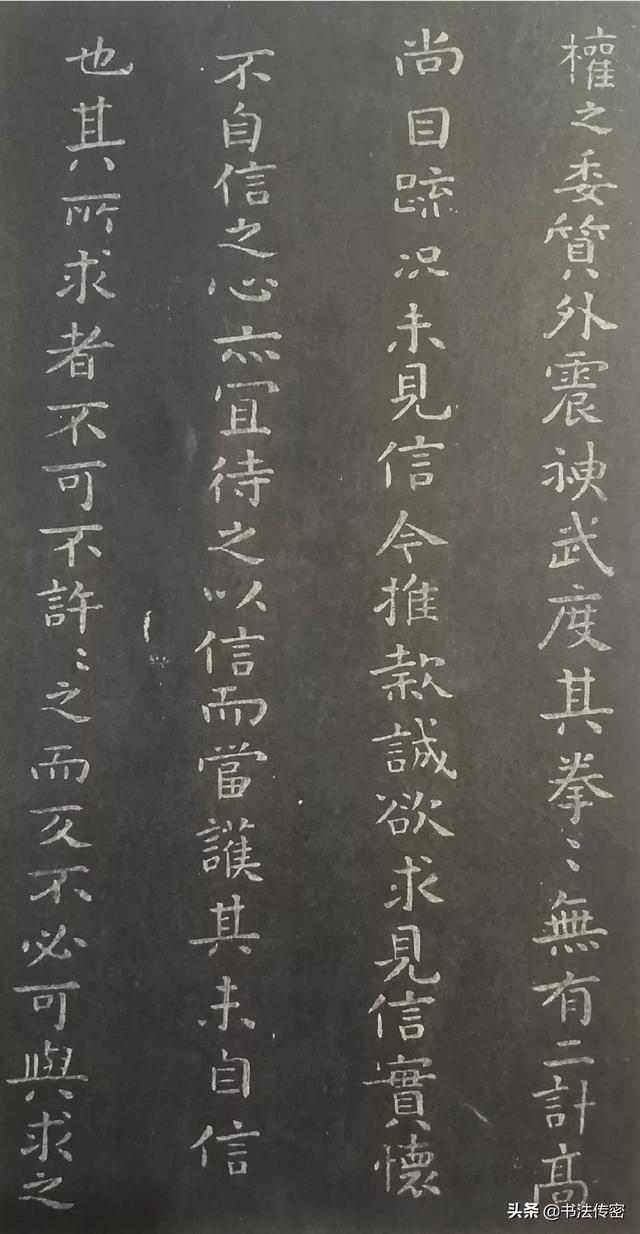 權之委質外震神武度其拳〻無有二計高
尚自疏况未見信今推款誠欲求見信實懷
不自信之心亦宜待之以信而當護其未自信
也其所求者不可不許〻之而反不必可與求之
头条 @书法传密